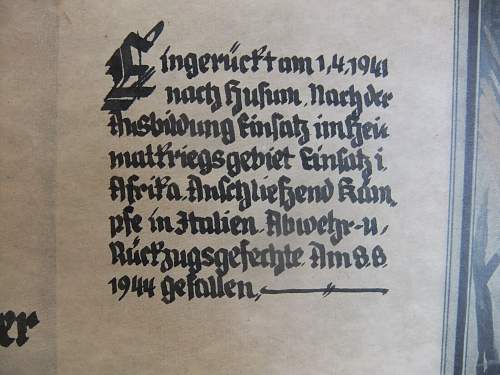 Eingerückt am 1.4.1941
nach Husum. Nach der
Ausbildung Einsatz im Hei
matkriegsgebiet Einsatz i.
Afrika. Anschließend Käm
pfe in Italien. Abwehr-u.
Rückzugsgefechte. Am 8.8.
1944 gefallen.
er